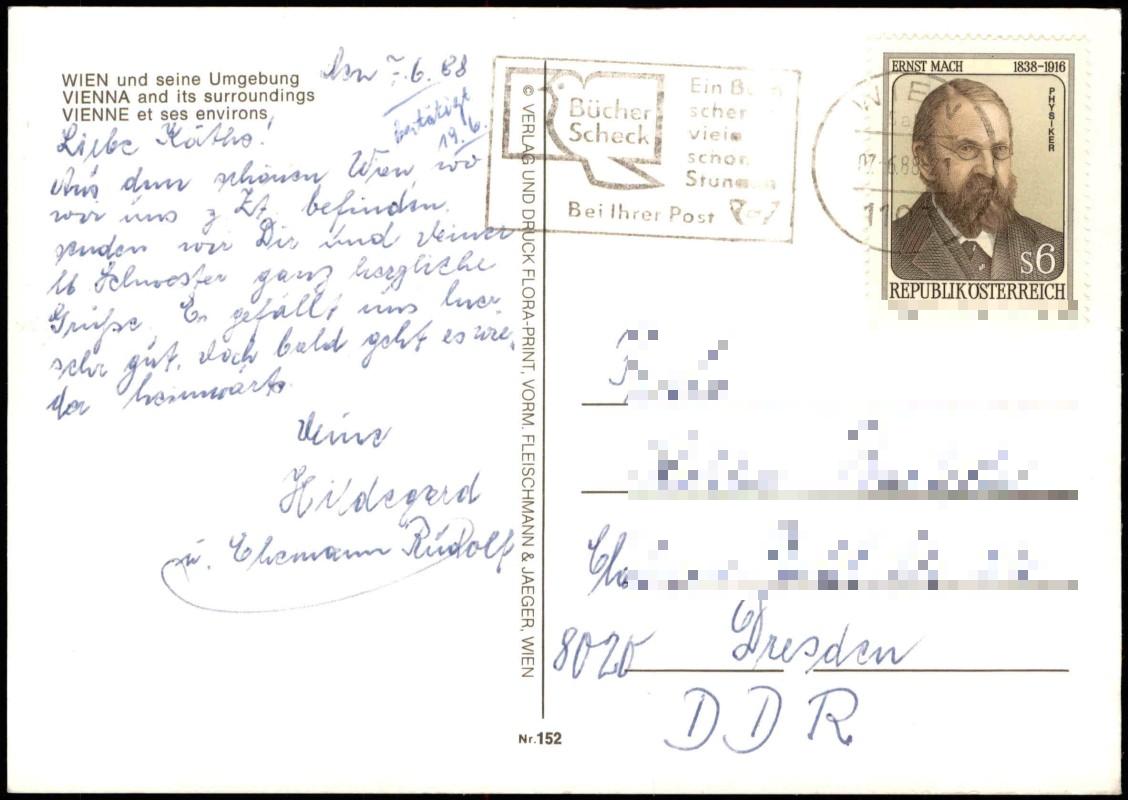 WIEN und seine Umgebung
VIENNA and its surroundings
VIENNE et ses environs
den 7.6.88
bestätigt
19.6.
Liebe Käthe!
Aus dem schönen Wien wo
wir uns z. Zt. befinden
senden wir Dir und Deiner
lb Schwester ganz herzliche
Grüße. Es gefällt uns hier
sehr gut, doch bald geht es wie-
der heimwärts
Deine
Hildegard
u. Ehemann Rudolf
© VERLAG UND DRUCK FLORA-PRINT, VORM. FLEISCHMANN & JAEGER, WIEN
Nr. 152
Bücher
Scheck
Ein
viele
schön
Bei Ihrer Post
WIEN
ERNST MACH 1838-1916
PHYSIKER
S6
REPUBLIK ÖSTERREICH
8020 Dresden
DDR